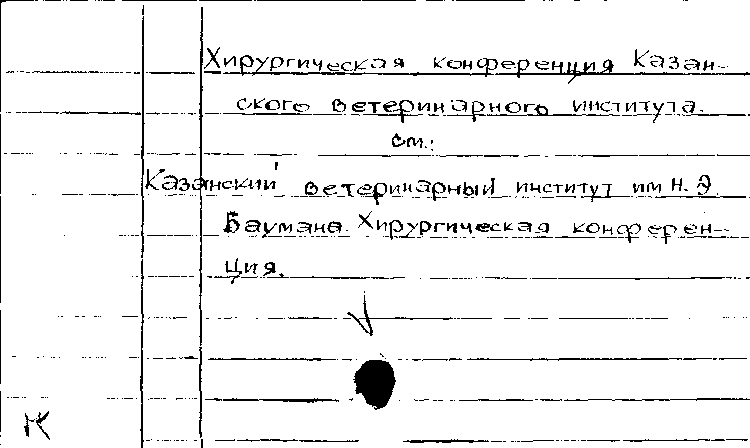 Хирургическая конференция Казан-
ского ветеринарного института.
см.:
Казанский ветеринарный институт им Н. Э.
Баумана. Хирургическая конферен-
ция.
К